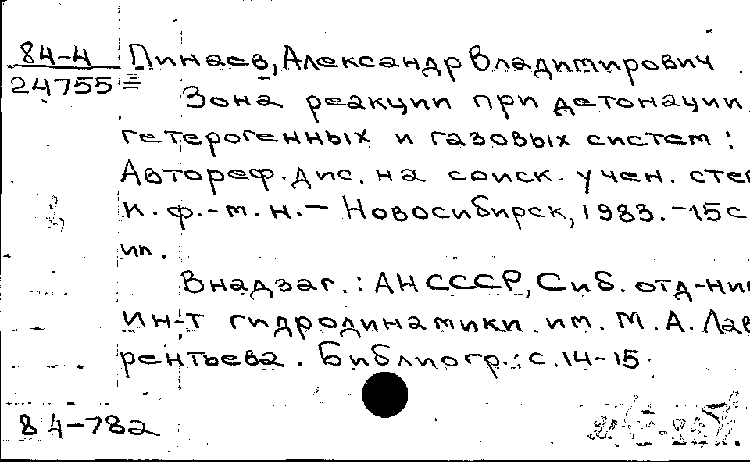 84-4 Пинаев, Александр Владимирович
24755 Зона реакции при детонации
гетерогенных и газовых систем :
Автореф. дис. на соиск. учен. степ
к. ф.-м. н. — Новосибирск, 1983. -15 с
ил.
Внадзаг. : АН СССР, Сиб. отд-ние
Ин-т гидродинамики им. М. А. Лав
рентьева. Библиогр.: с. 14-15.
84-782